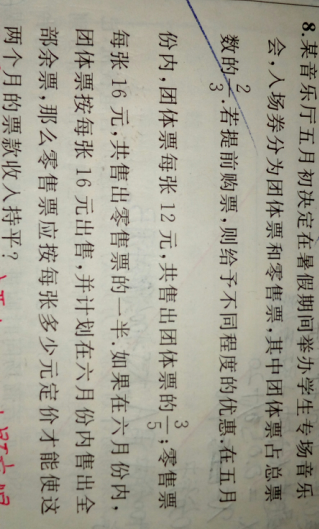 8.某音乐厅五月初决定在暑假期间举办学生专场音乐
会,入场券分为团体票和零售票,其中团体票占总票
数的2/3.若提前购票,则给予不同程度的优惠.在五月
份内,团体票每张12元,共售出团体票的3/5;零售票
每张16元,共售出零售票的一半.如果在六月份内,
团体票按每张16元出售,并计划在六月份内售出全
部余票,那么零售票应按每张多少元定价才能使这
两个月的票款收入持平?